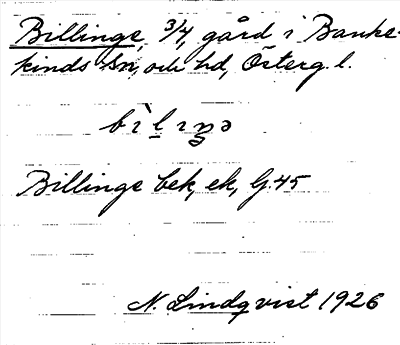 Billinge, 3/4, gård i Banke-
kinds sn, och hd, Österg. l.
Billinge bek, ek, G. 45
N. Lindqvist 1926